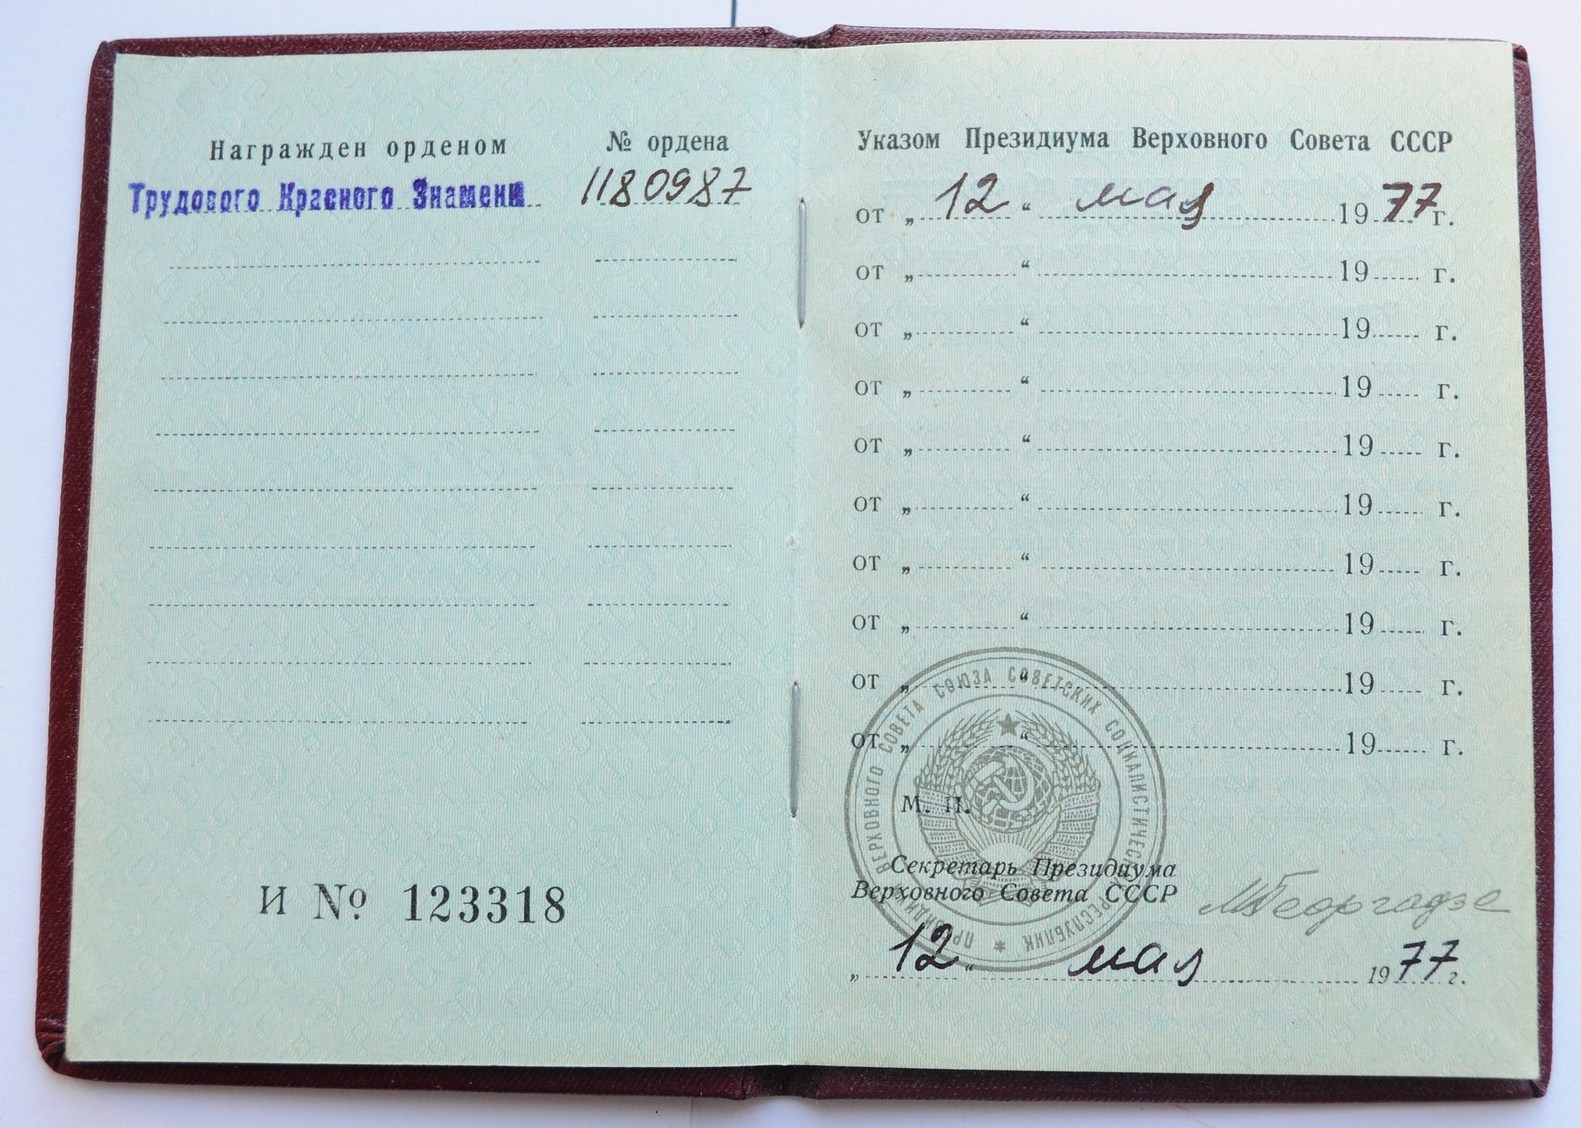 Награжден орденом № ордена
Трудового Красного Знамени 1180987
И № 123318
Указом Президиума Верховного Совета СССР
от „ 12 “ мая 19 77 г.
от „ “ 19 г.
от „ “ 19 г.
от „ “ 19 г.
от „ “ 19 г.
от „ “ 19 г.
от „ “ 19 г.
от „ “ 19 г.
от „ “ 19 г.
от „ “ 19 г.
ПРЕЗИДИУМ ВЕРХОВНОГО СОВЕТА СОЮЗА СОВЕТСКИХ СОЦИАЛИСТИЧЕСКИХ РЕСПУБЛИК
М. П.
Секретарь Президиума
Верховного Совета СССР МГеоргадзе
„ 12 “ мая 1977 г.